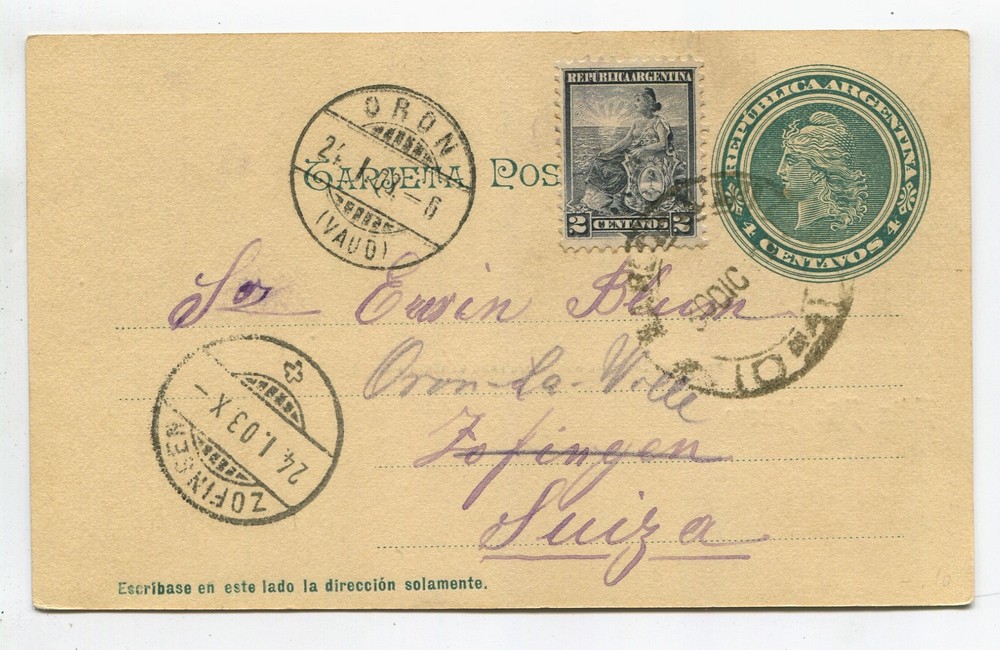 REPÚBLICA ARGENTINA
2 CENTAVOS 2
REPÚBLICA ARGENTINA
4 CENTAVOS 4
TARJETA POS
ORON
(VAUD)
Sor Erwin Blum
Oron-la-Ville
Zofingen
Suiza
DIC
ZOFINGEN
24.I.03 X-
Escríbase en este lado la dirección solamente.